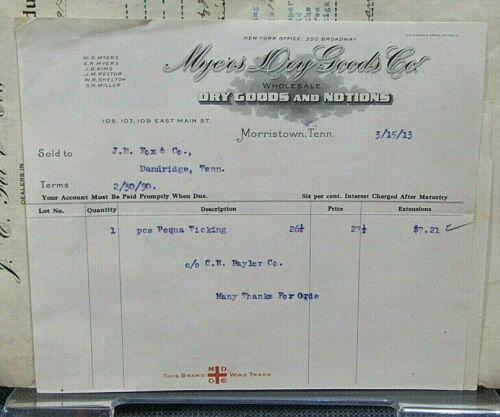 NEW YORK OFFICE, 350 BROADWAY
W.S. MYERS
E.R. MYERS
J.B. KING
J.M. RECTOR
W.R. SHELTON
S.R. MILLER
Myers Dry Goods Co.
WHOLESALE
DRY GOODS AND NOTIONS
105, 107, 109 EAST MAIN ST.
Morristown, Tenn. 3/15/13
Sold to J.E. Fox & Co.,
Dandridge, Tenn.
Terms 2/30/90.
Your Account Must Be Paid Promptly When Due. Six per cent. Interest Charged After Maturity
Lot No. Quantity Description Price Extensions
1 pcs Pequa Ticking 26½ 27½ $7.21
c/o C.E. Baylor Co.
Many Thanks For Orde
THIS BRAND M D G Co WINS TRADE
DEALERS IN